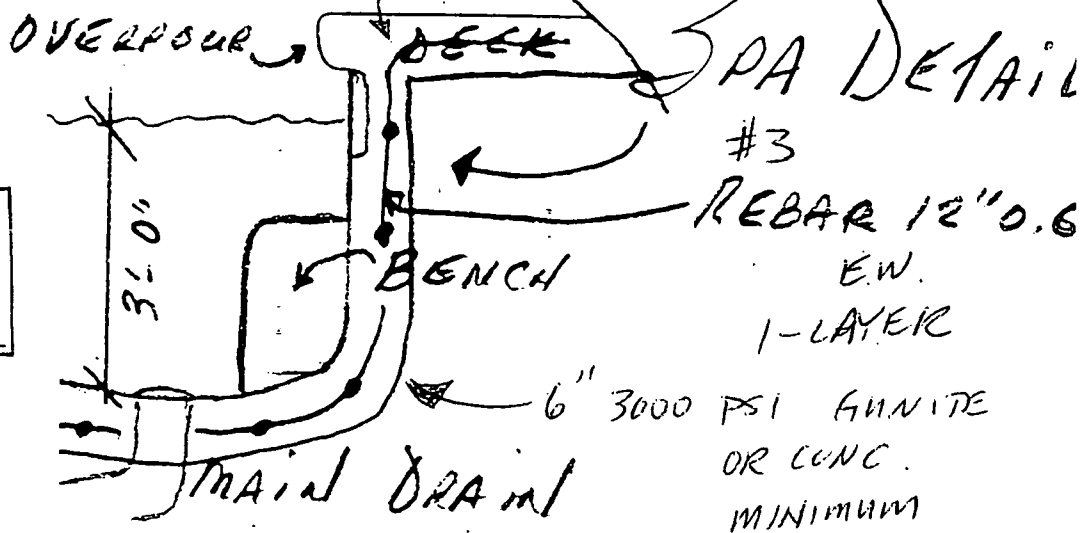 OVERPOUR
DECK
SPA DETAIL
#3
REBAR 12" O.C
E.W.
1-LAYER
3'-0"
BENCH
6" 3000 PSI GUNITE
OR CONC.
MINIMUM
MAIN DRAIN